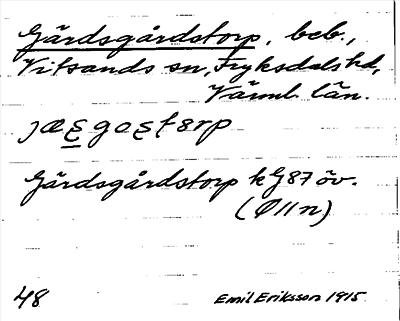 Gårdsgårdstorp, beb.,
Vitsands sn, Fryksdals hd,
Värml. län.
Gärdsgårdstorp k G87 öv.
(Ø11n)
48
Emil Eriksson 1915